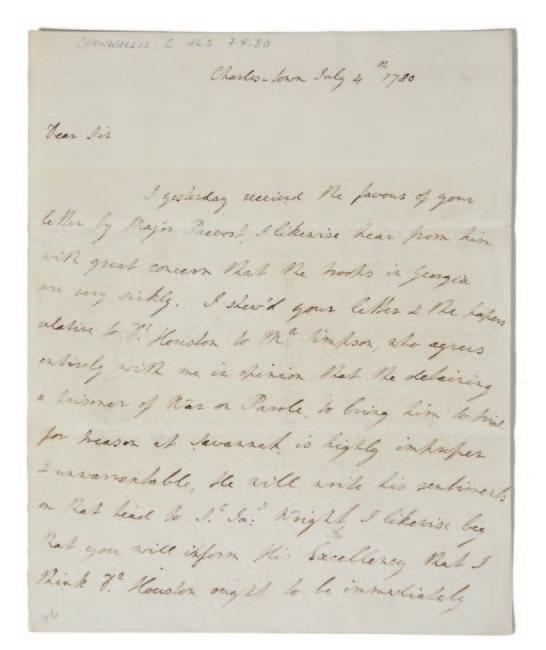 CORNWALLIS, C ALS 7-4-80
Charles-town July 4th 1780
Dear Sir
I yesterday received the favour of your
letter by Major Prevost, I likewise hear from him
with great concern that the troops in Georgia
are very sickly. I shew'd your letter & the papers
relative to Dr. Houston to Mr. Simpson, who agrees
entirely with me in opinion that the detaining
a Prisoner of War on Parole, to bring him to trial
for treason at Savannah, is highly improper
& unwarrantable, He will write his sentiments
on that head to Sr. Jas: Wright, I likewise beg
that you will inform His Excellency that I
think Dr. Houston ought to be immediately